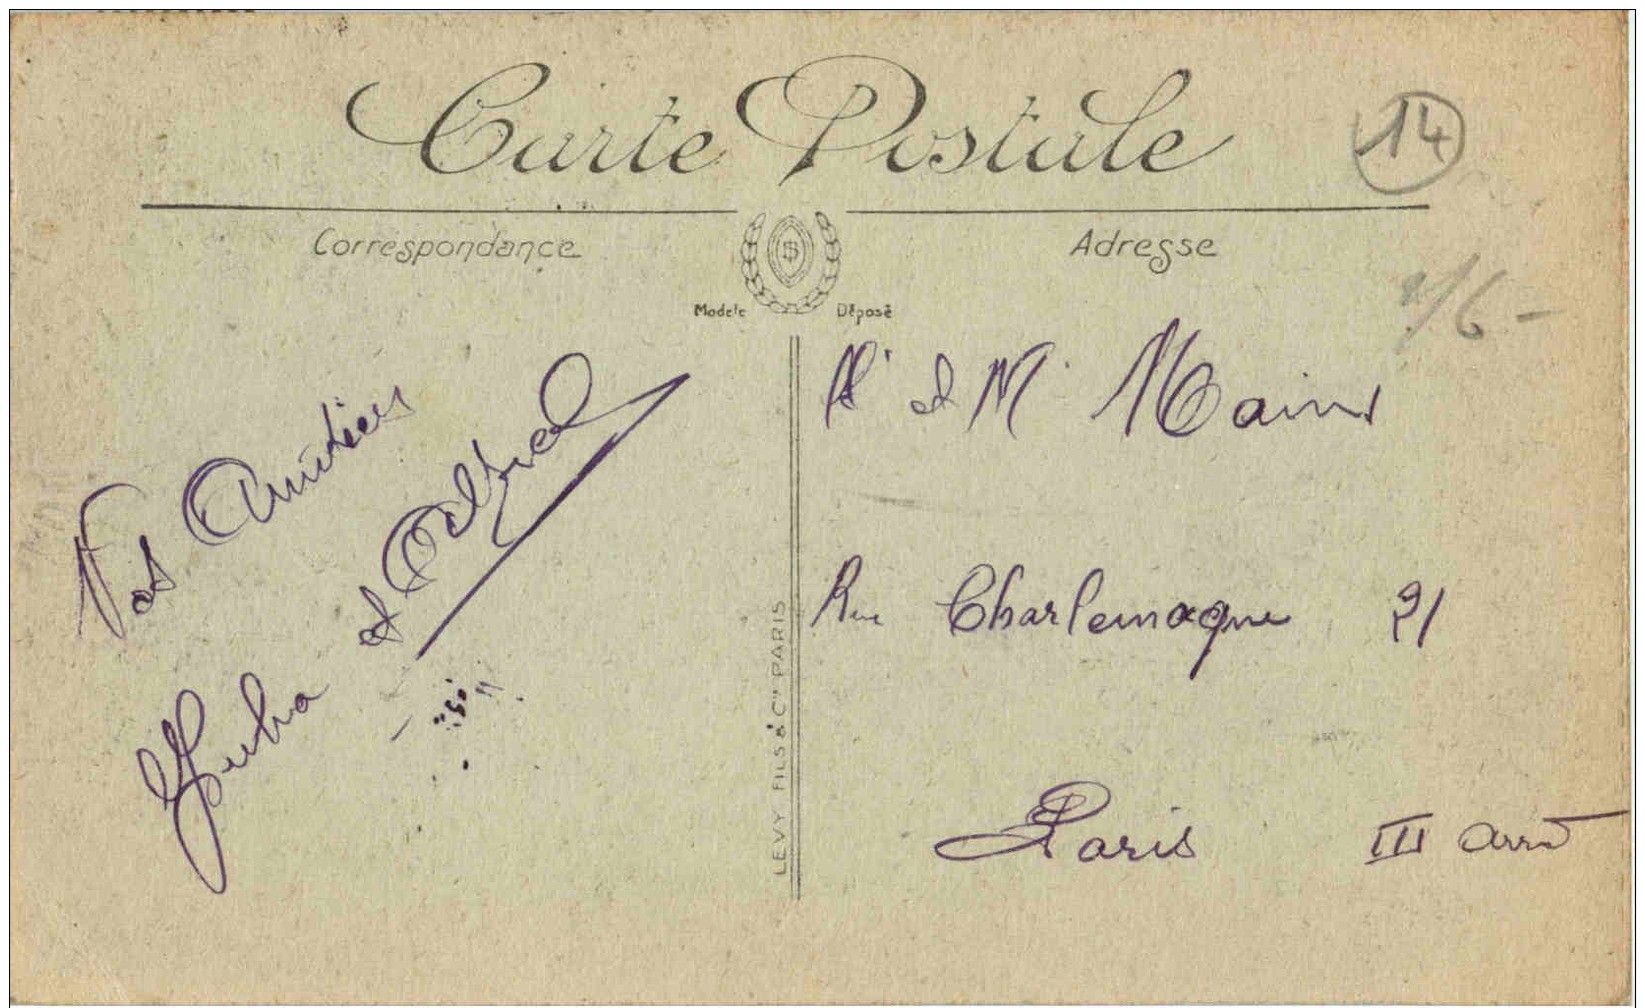 Carte Postale
14
Correspondance
Adresse
Modele Déposé
/6-
Vos Amities
et Alfred
Mr et Me
Rue Charlemagne 21
Paris III arrt
LEVY FILS & Cie PARIS